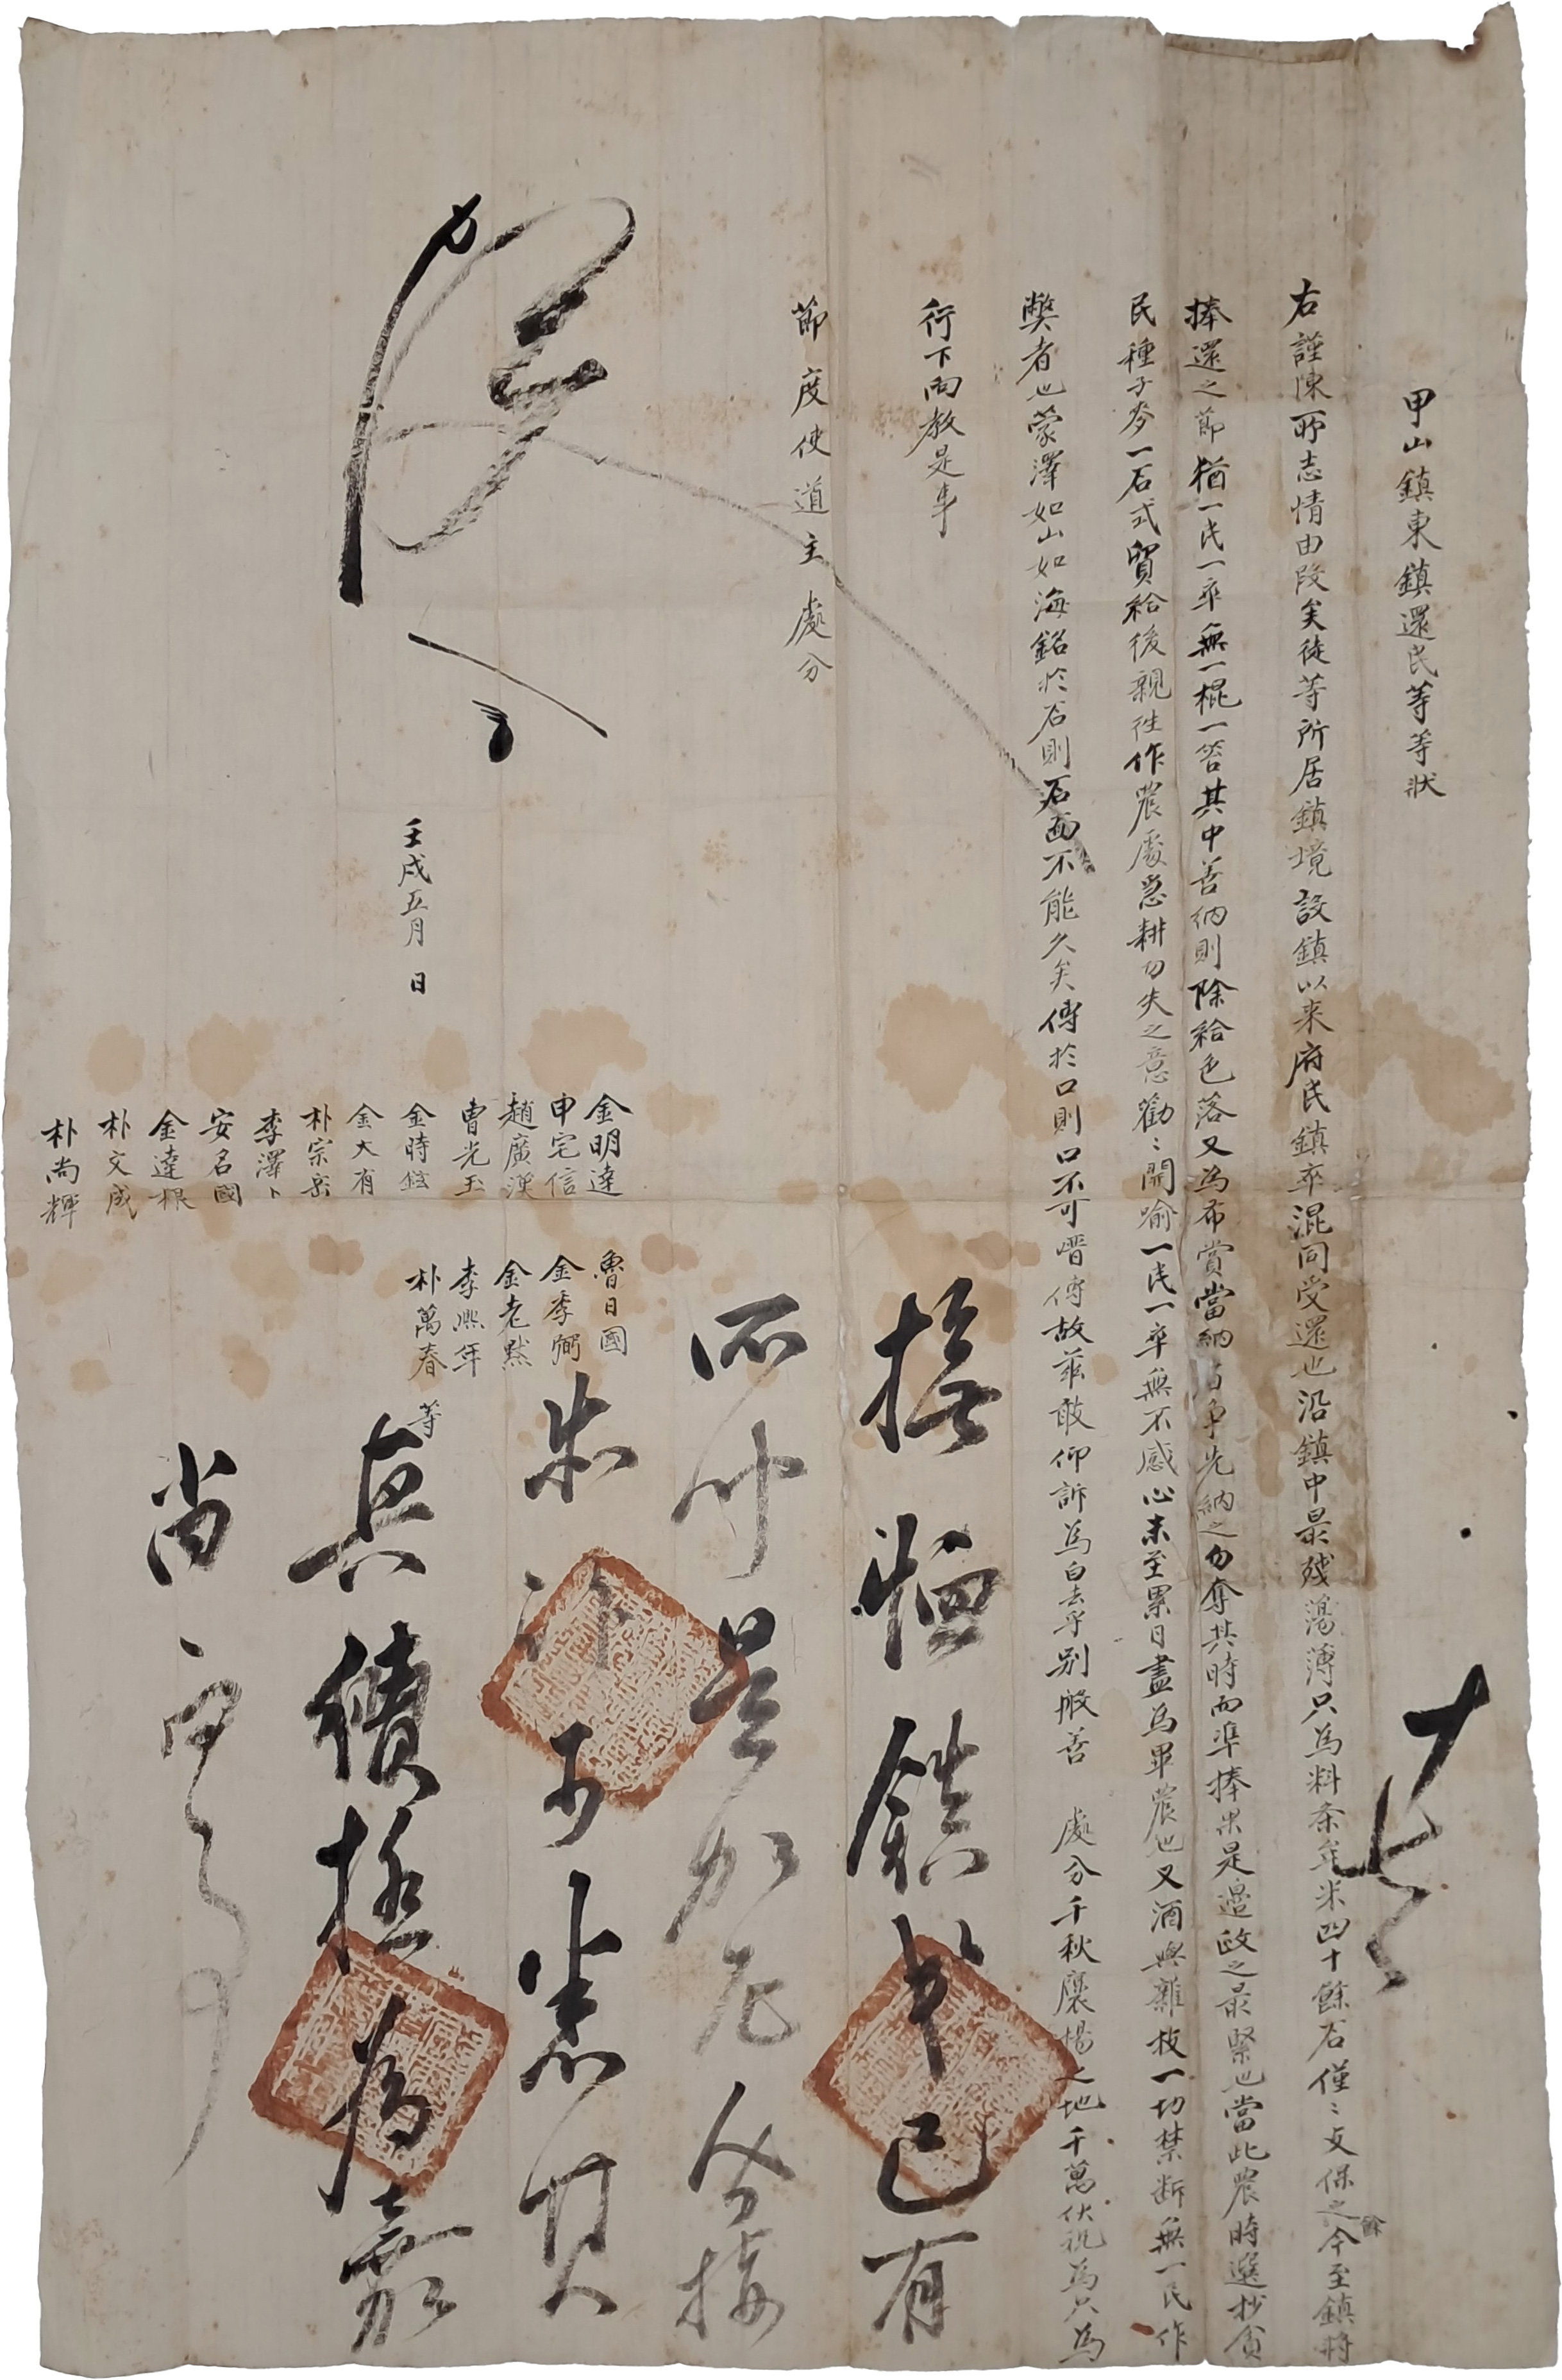 甲山鎮東鎮還民等等狀
右謹陳所志情由段矣徒等所居鎮境設鎮以来府民鎮卒混同受還也沿鎮中最殘蕩薄只為料条年米四十餘石僅〻支保之餘今至鎮將
捧還之節猶一民一卒無一棍一笞其中善納則除給色落又為布賞當納者爭先納之勿奪其時而準捧果是邊政之最緊也當此農時選抄貧
民種子麥一石式貿給後親徃作農處忽耕勿失之意勸〻開喻一民一卒無不感心未至累日盡為畢農也又酒與雜技一切禁断無一民作
弊者也蒙澤如山如海銘於石則石面不能久矣傳於口則口不可㬜傳故茲敢仰訴為白去乎別般善 處分千秋褒楊之地千萬伏祝為只為
行下向教是事
節度使道主 處分
使
壬戌五月 日
金明達 魯日國
申宅信 金季弼
趙廣漢 金老㸃
曹光玉 李熙年
金時鉉 朴萬春 等
金大有
朴宗岳
李澤卜
安名國
金達根
朴文成
朴尚輝
撫恤鎮卒已有
所聞是如尼今接
朱許可悉其
真績極為嘉
尚 向事
十七